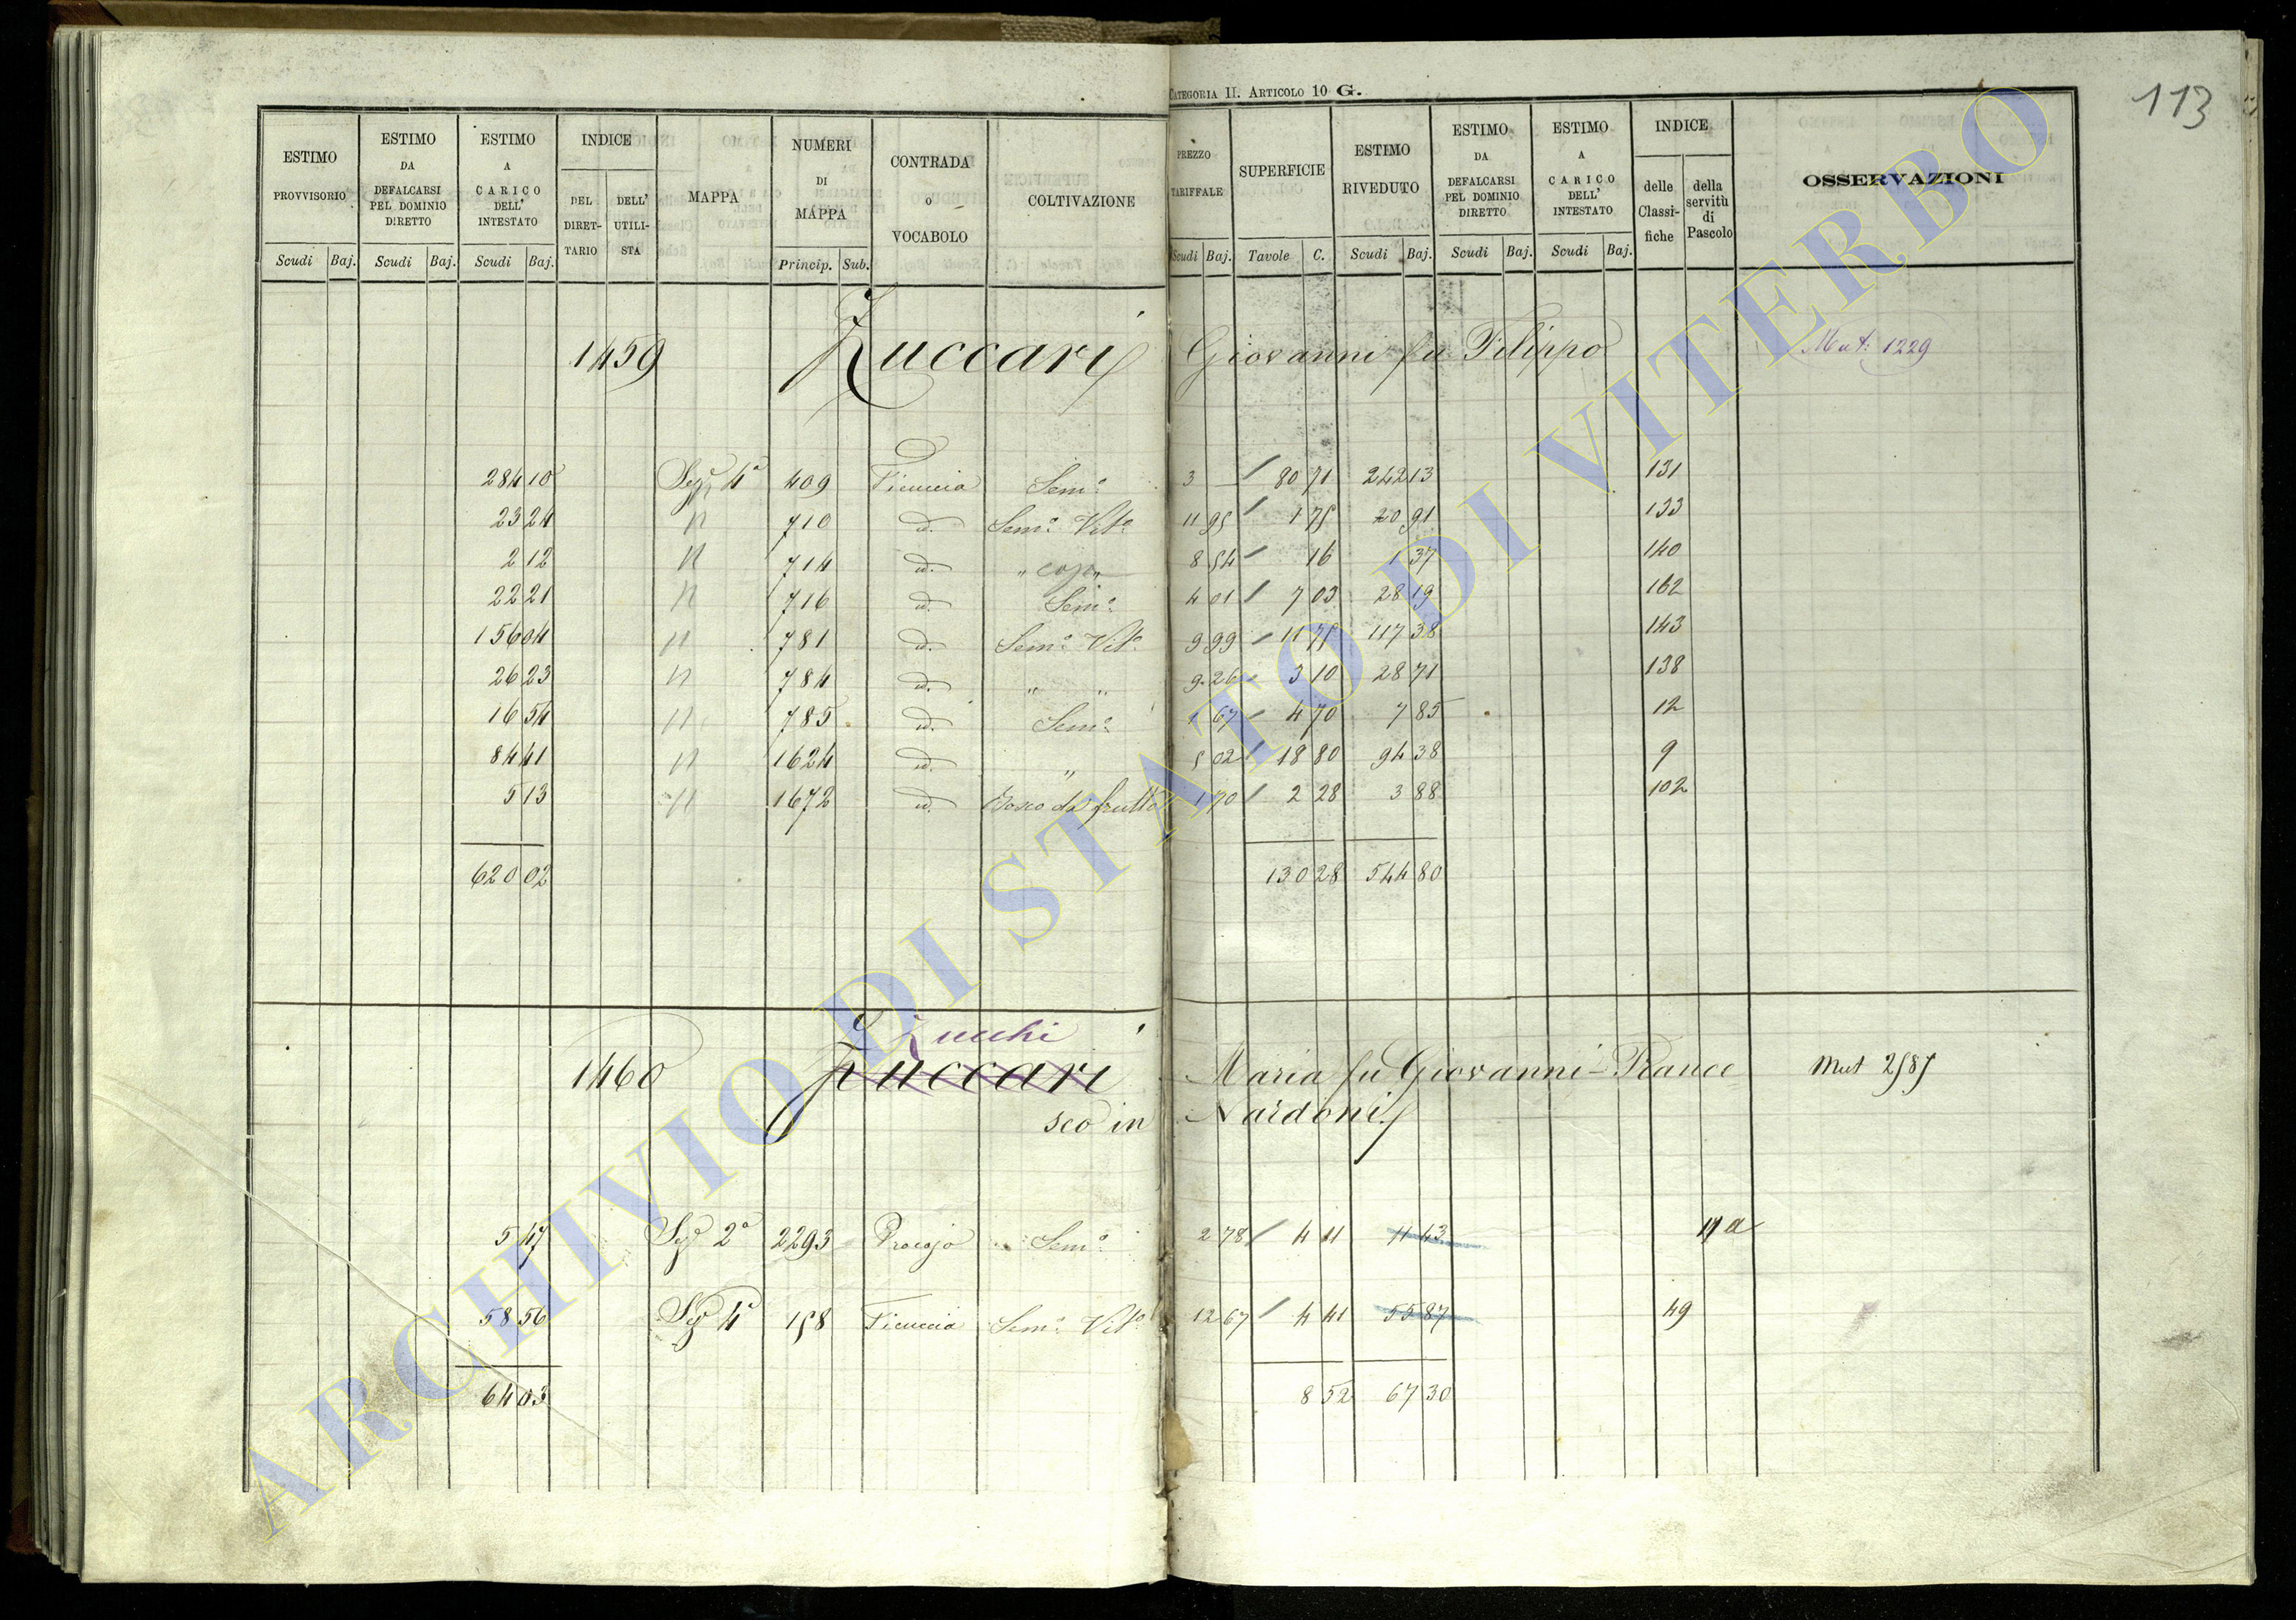 113
CATEGORIA II. ARTICOLO 10 G.
ESTIMO PROVVISORIO Scudi Baj.
ESTIMO DA DEFALCARSI PEL DOMINIO DIRETTO Scudi Baj.
ESTIMO A CARICO DELL' INTESTATO Scudi Baj.
INDICE DEL DIRETTARIO DELL' UTILISTA
MAPPA
NUMERI DI MAPPA Princip. Sub.
CONTRADA o VOCABOLO
COLTIVAZIONE
PREZZO TARIFFALE Scudi Baj.
SUPERFICIE Tavole C.
ESTIMO RIVEDUTO Scudi Baj.
ESTIMO DA DEFALCARSI PEL DOMINIO DIRETTO Scudi Baj.
ESTIMO A CARICO DELL' INTESTATO Scudi Baj.
INDICE delle Classifiche della servitù di Pascolo
OSSERVAZIONI
1459 Zuccari Giovanni fu Filippo Mut: 1229
284 10 Sez. 4ª 409 Ficuccia Semo 3 — 80 71 242 13 131
23 24 " 710 id. Semo Vito 11 95 1 75 20 91 133
2 12 " 714 id. 8 54 16 1 37 140
22 21 " 716 id. Semo 4 01 7 03 28 19 162
156 04 " 781 id. Semo Vito 9 99 11 75 117 38 143
26 23 " 784 id. " " 9 26 3 10 28 71 138
16 54 " 785 id. Semo 1 67 4 70 7 85 12
84 41 " 1624 id. " 5 02 18 80 94 38 9
5 13 " 1672 id. Bosco da frutto 1 70 2 28 3 88 102
620 02 130 28 544 80
Zucchi
1460 Zuccari Maria fu Giovanni - France Mut 2585
sco in Nardoni
5 47 Sez 2ª 2293 Procojo Semo 2 78 4 11 11 43 11 a
58 56 Sez 4ª 158 Ficuccia Semo Vito 12 67 4 41 55 87 49
64 03 8 52 67 30
ARCHIVIO DI STATO DI VITERBO